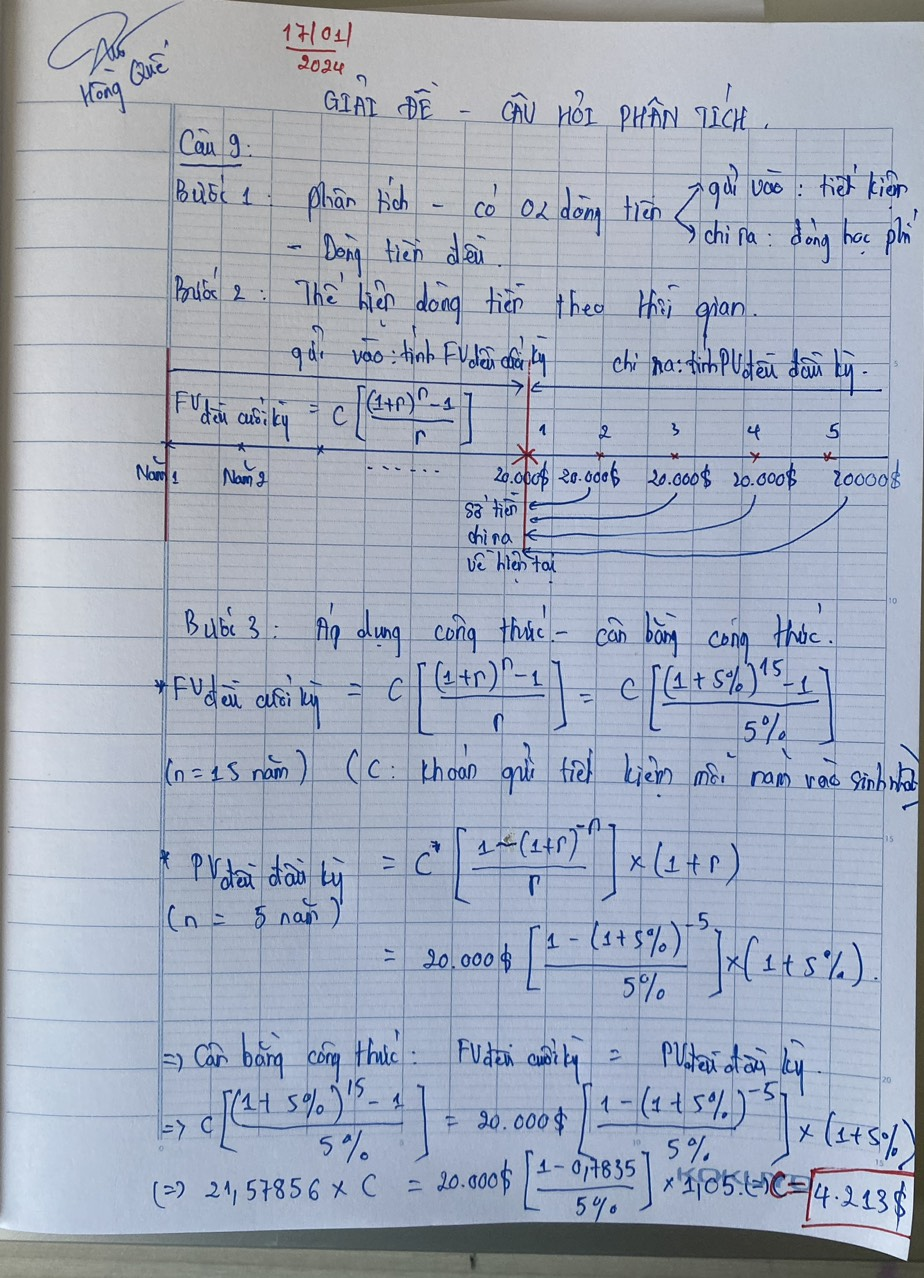 17/01/
2024
Hồng Quế
GIẢI ĐỀ - CÂU HỎI PHÂN TÍCH.
Câu 9:
Bước 1: phân tích - có 02 dòng tiền gửi vào: tiết kiện
chi ra: đóng học phí
- Dòng tiền đều.
Bước 2: Thể hiện dòng tiền theo thời gian.
gửi vào: tính FV đều cuối kỳ chi ra: tính PV đều đầu kỳ.
FV đều cuối kỳ = C [((1+r)^n - 1)/r]
1 2 3 4 5
Năm 1 Năm 2 ....... 20.000$ 20.000$ 20.000$ 20.000$ 20000$
Số tiền
chi ra
về hiện tại
Bước 3: Áp dụng công thức - cân bằng công thức.
* FV đều cuối kỳ = C [((1+r)^n - 1)/r] = C [((1+5%)^15 - 1)/5%]
(n = 15 năm) (C: khoản gửi tiết kiệm mỗi năm vào sinh nhật
* PV đều đầu kỳ = C* [(1-(1+r)^-n)/r] × (1+r)
(n = 5 năm)
= 20.000$ [(1-(1+5%)^-5)/5%] × (1+5%).
=> Cân bằng công thức: FV đều cuối kỳ = PV đều đầu kỳ.
=> C [((1+5%)^15 - 1)/5%] = 20.000$ [(1-(1+5%)^-5)/5%] × (1+5%)
(=) 21,57856 × C = 20.000$ [(1-0,7835)/5%] × 1,05. (=) C = 4.213$
KOKUYO